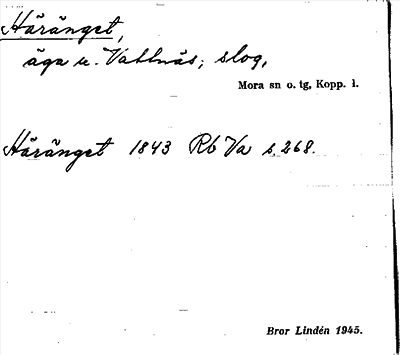 Häränget,
äga u. Vattnäs; slog,
Mora sn o. tg, Kopp. l.
Häränget 1843 Rb Va s. 268.
Bror Lindén 1945.